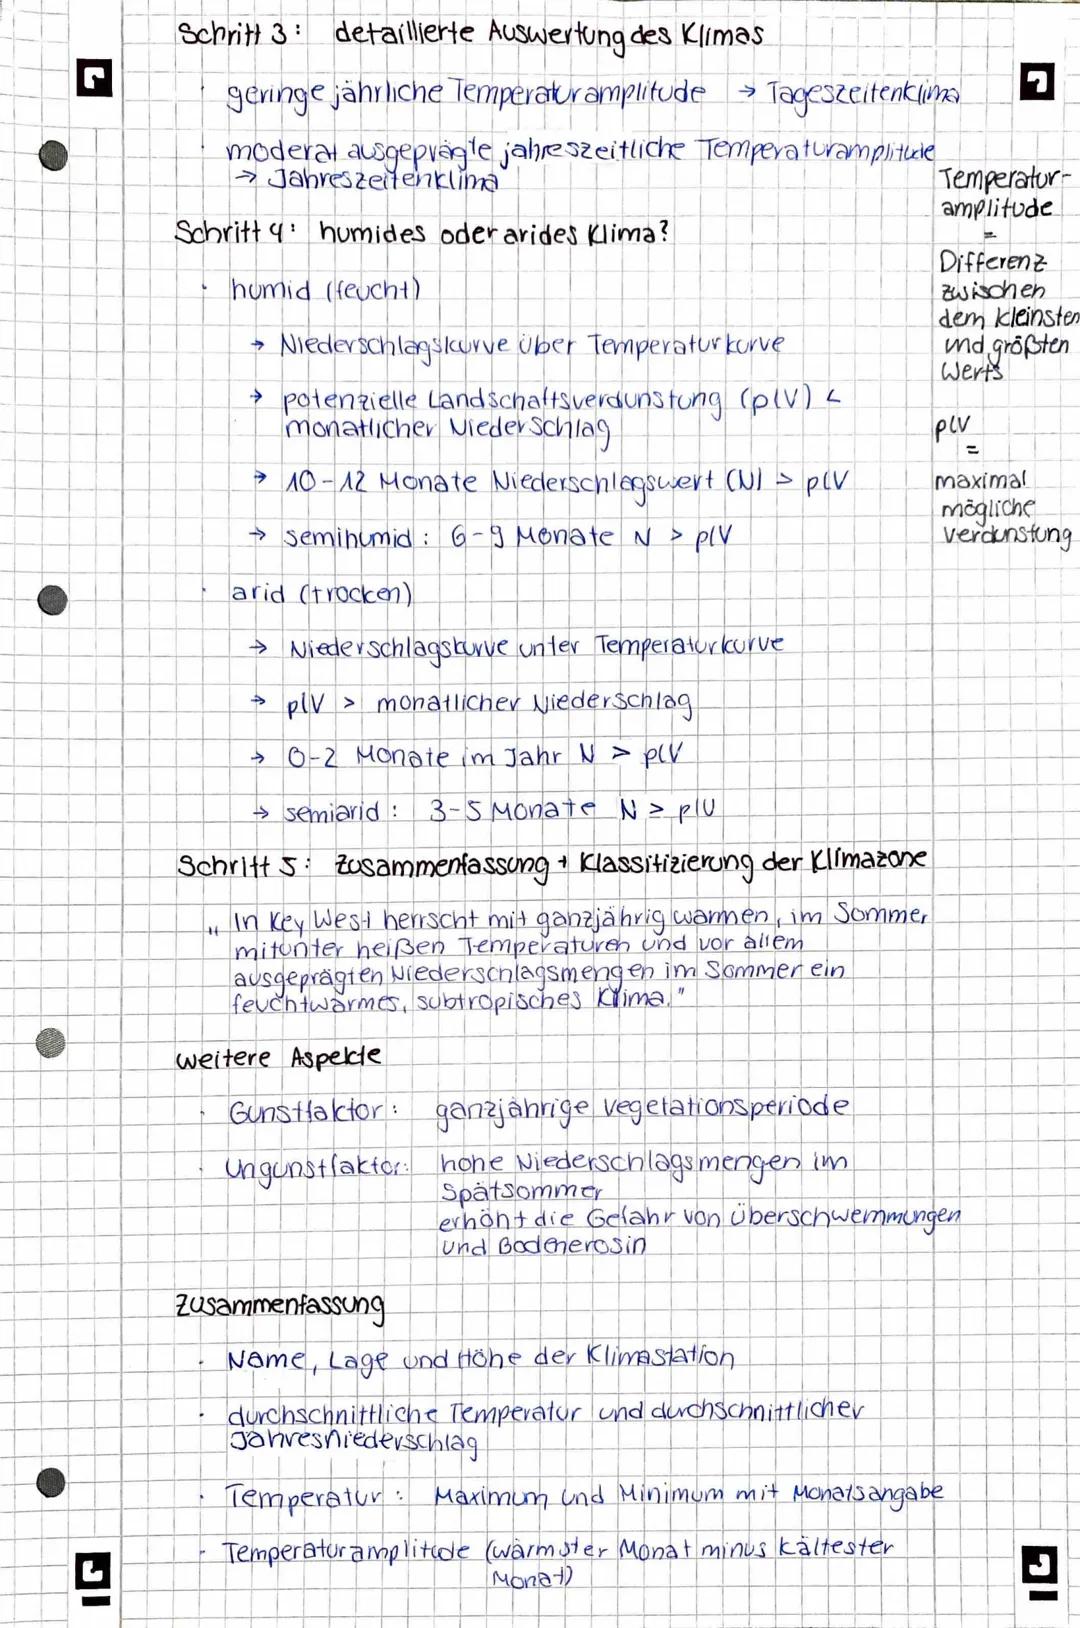 Schritt 3: detaillierte Auswertung des Klimas
· geringe jährliche Temperaturamplitude → Tageszeitenklima
· moderat ausgeprägte jahreszeitliche Temperaturamplitude
→ Jahreszeitenklima
Temperatur-
amplitude
=
Differenz
zwischen
dem kleinsten
und größten
Werts
Schritt 4: humides oder arides Klima?
· humid (feucht)
→ Niederschlagskurve über Temperaturkurve
→ potenzielle Landschaftsverdunstung (plV) <
monatlicher Niederschlag
→ 10-12 Monate Niederschlagswert (N) > plV
→ semihumid: 6-9 Monate N > plV
plV
=
maximal
mögliche
verdunstung
· arid (trocken)
→ Niederschlagskurve unter Temperaturkurve
→ plV > monatlicher Niederschlag
→ 0-2 Monate im Jahr N > plV
→ semiarid: 3-5 Monate N ≥ plV
Schritt 5: Zusammenfassung + Klassifizierung der Klimazone
„In Key West herrscht mit ganzjährig warmen, im Sommer
mitunter heißen Temperaturen und vor allem
ausgeprägten Niederschlagsmengen im Sommer ein
feuchtwarmes, subtropisches Klima."
weitere Aspekte
· Gunstfaktor: ganzjährige Vegetationsperiode
· Ungunstfaktor: hohe Niederschlagsmengen im
Spätsommer
erhöht die Gefahr von Überschwemmungen
und Bodenerosin
Zusammenfassung
· Name, Lage und Höhe der Klimastation
· durchschnittliche Temperatur und durchschnittlicher
Jahresniederschlag
· Temperatur: Maximum und Minimum mit Monatsangabe
· Temperaturamplitude (wärmster Monat minus kältester
Monat)